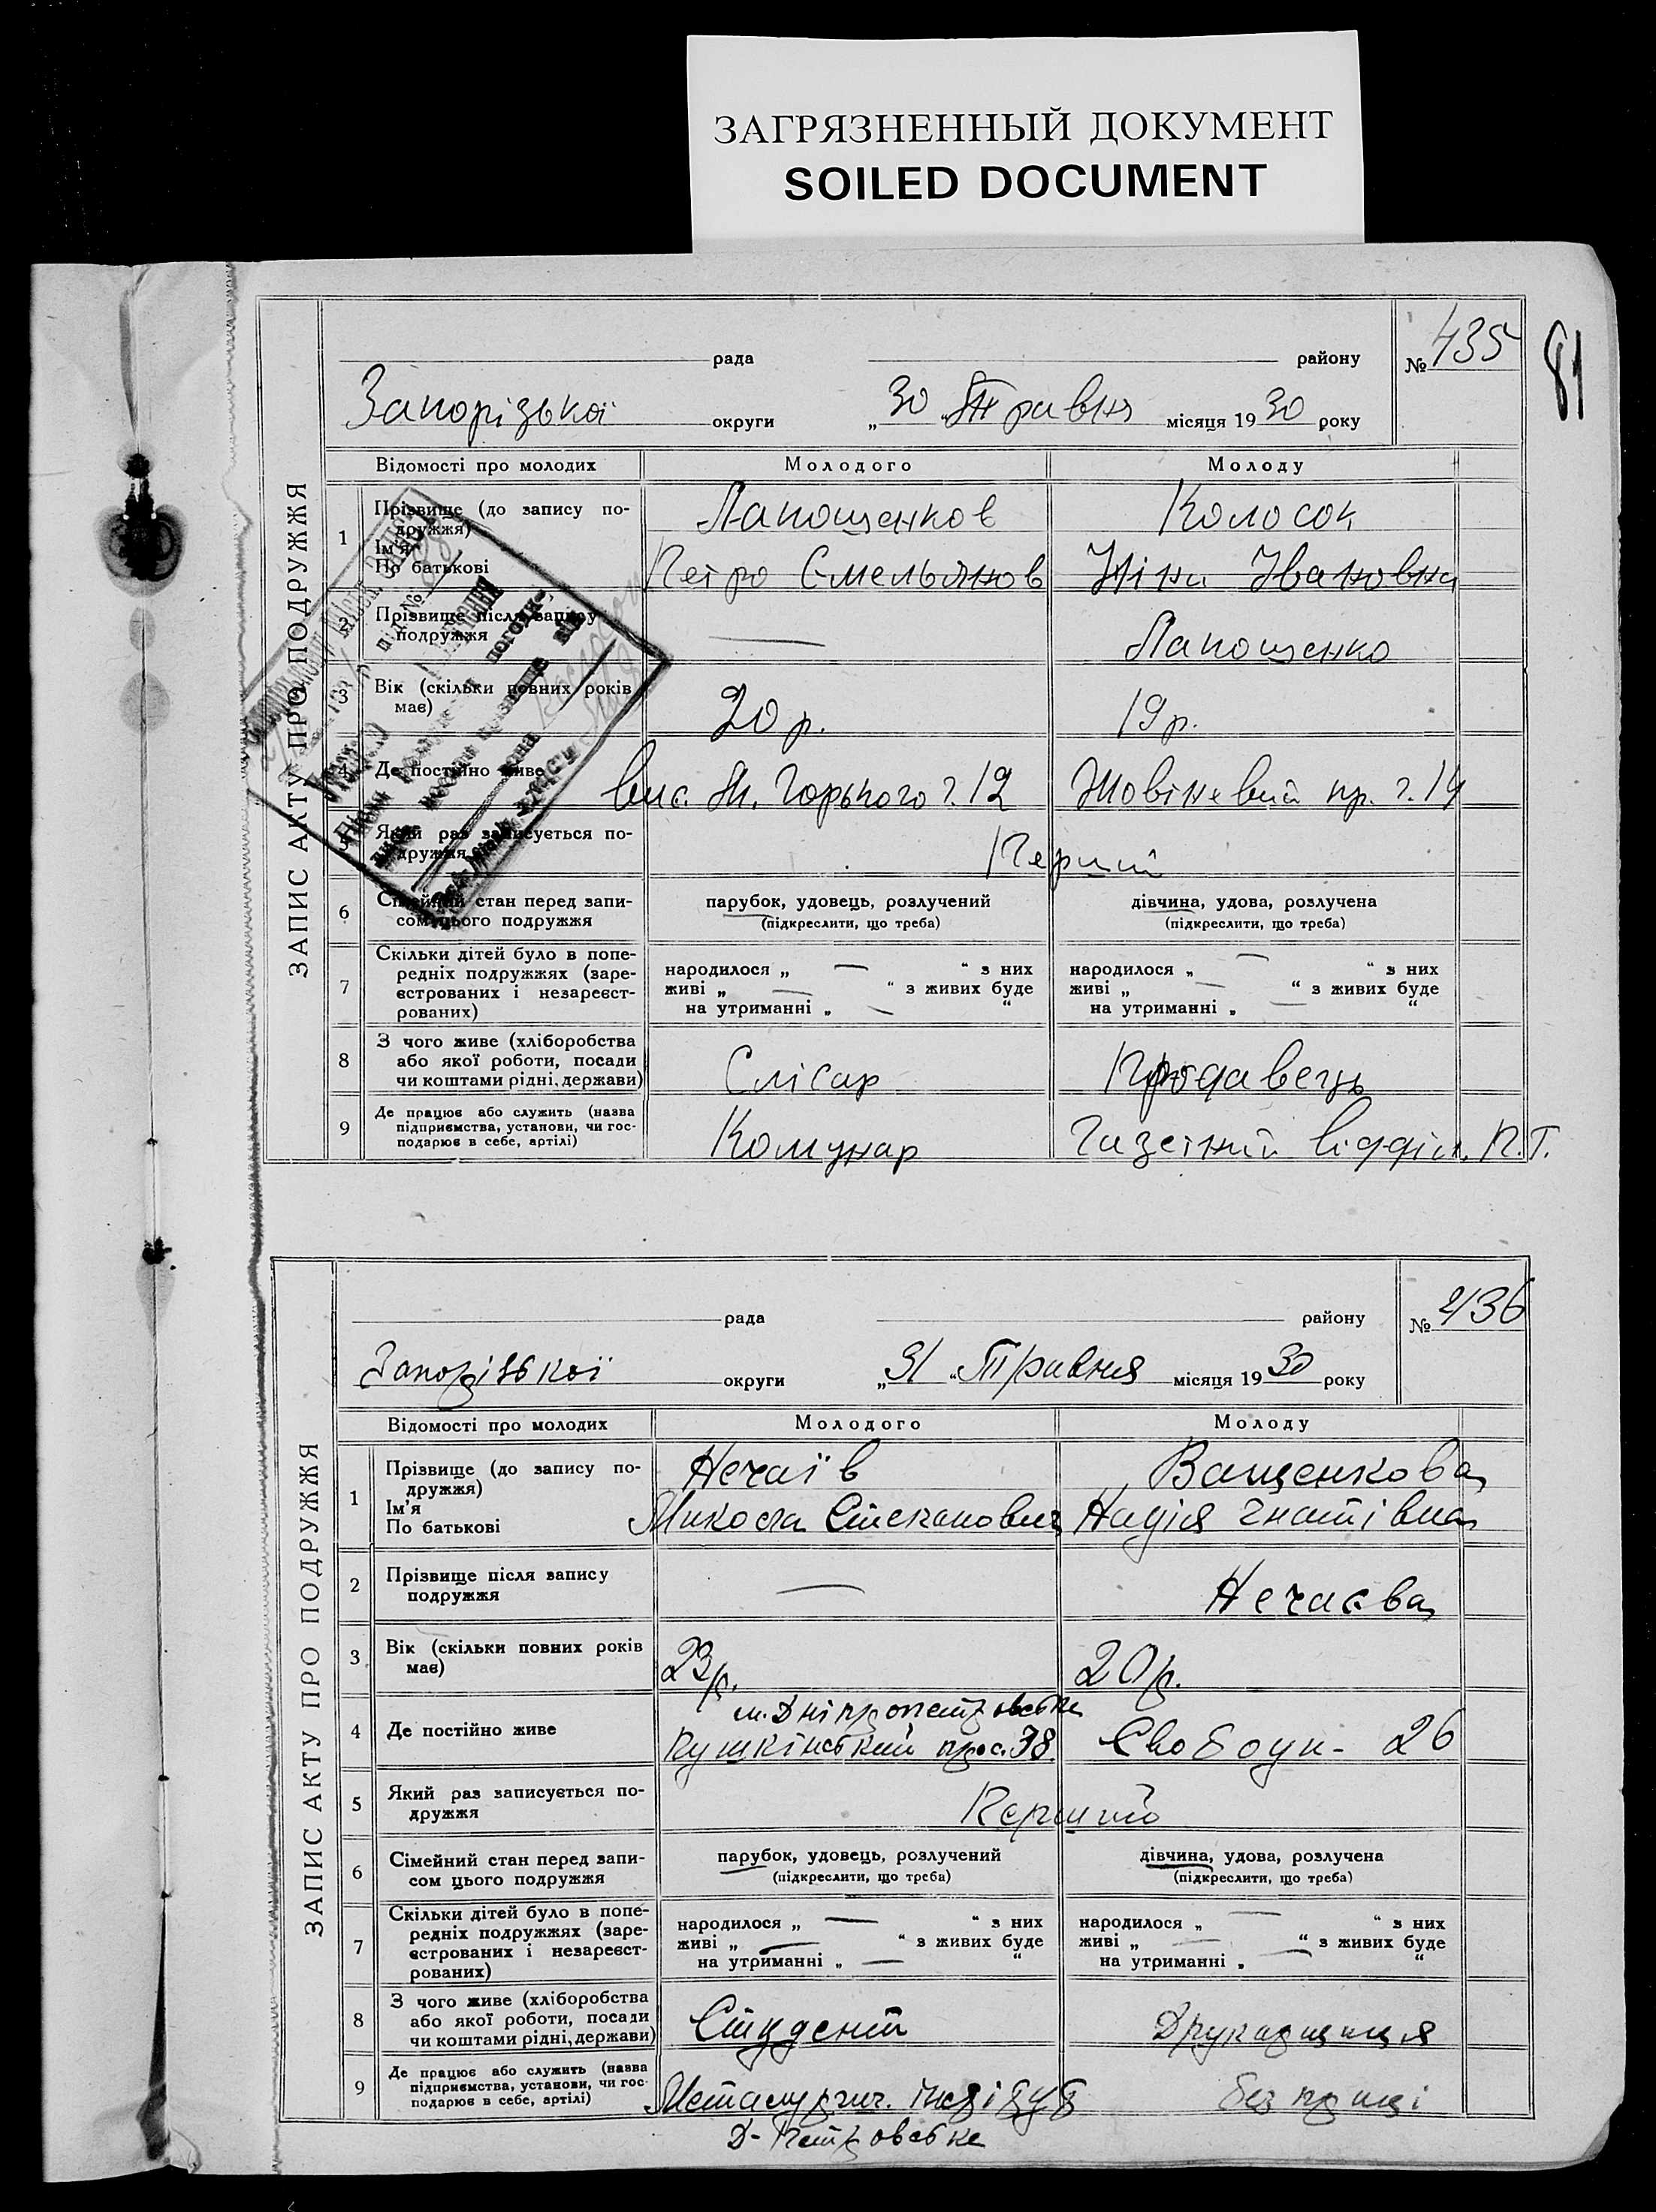 ЗАГРЯЗНЕННЫЙ ДОКУМЕНТ
SOILED DOCUMENT
81
ЗАПИС АКТУ ПРО ПОДРУЖЖЯ
рада району № 435
Запорізької округи „30“ Травня місяця 1930 року
Відомості про молодих Молодого Молоду
1 Прізвище (до запису по-
дружжя)
Ім'я
По батькові
Лапощенков Колосок
Петро Омельянов Ніна Івановна
2 Прізвище після запису
подружжя
— Лапощенко
3 Вік (скільки повних років
має)
20 р. 19 р.
4 Де постійно живе
вис. М. Горького ч. 12 Жовтневий пр. ч. 14
5 Який раз записується по-
дружжя
Перший
6 Сімейний стан перед запи-
сом цього подружжя
парубок, удовець, розлучений дівчина, удова, розлучена
(підкреслити, що треба) (підкреслити, що треба)
7 Скільки дітей було в попе-
редніх подружжях (заре-
єстрованих і незареєст-
рованих)
народилося „ — “ з них народилося „ — “ з них
живі „ — “ з живих буде живі „ — “ з живих буде
на утриманні „ — “ на утриманні „ — “
8 З чого живе (хліборобства
або якої роботи, посади
чи коштами рідні, держави)
Слісар Продавець
9 Де працює або служить (назва
підприємства, установи, чи гос-
подарює в себе, артілі)
Комунар Газетний відділ. П.Т.
ЗАПИС АКТУ ПРО ПОДРУЖЖЯ
рада району № 436
Запорізької округи „31“ Травня місяця 1930 року
Відомості про молодих Молодого Молоду
1 Прізвище (до запису по-
дружжя)
Ім'я
По батькові
Нечаїв Ващенкова
Микола Степанович Надія Гнатівна
2 Прізвище після запису
подружжя
— Нечаєва
3 Вік (скільки повних років
має)
23 р. 20 р.
4 Де постійно живе
м. Дніпропетровське
Пушкінський прос. 38. Свободи - 26
5 Який раз записується по-
дружжя
Перший
6 Сімейний стан перед запи-
сом цього подружжя
парубок, удовець, розлучений дівчина, удова, розлучена
(підкреслити, що треба) (підкреслити, що треба)
7 Скільки дітей було в попе-
редніх подружжях (заре-
єстрованих і незареєст-
рованих)
народилося „ — “ з них народилося „ — “ з них
живі „ — “ з живих буде живі „ — “ з живих буде
на утриманні „ — “ на утриманні „ — “
8 З чого живе (хліборобства
або якої роботи, посади
чи коштами рідні, держави)
Студент Друкарщиця
9 Де працює або служить (назва
підприємства, установи, чи гос-
подарює в себе, артілі)
Металургич. інстітут без праці
Д-Петровське